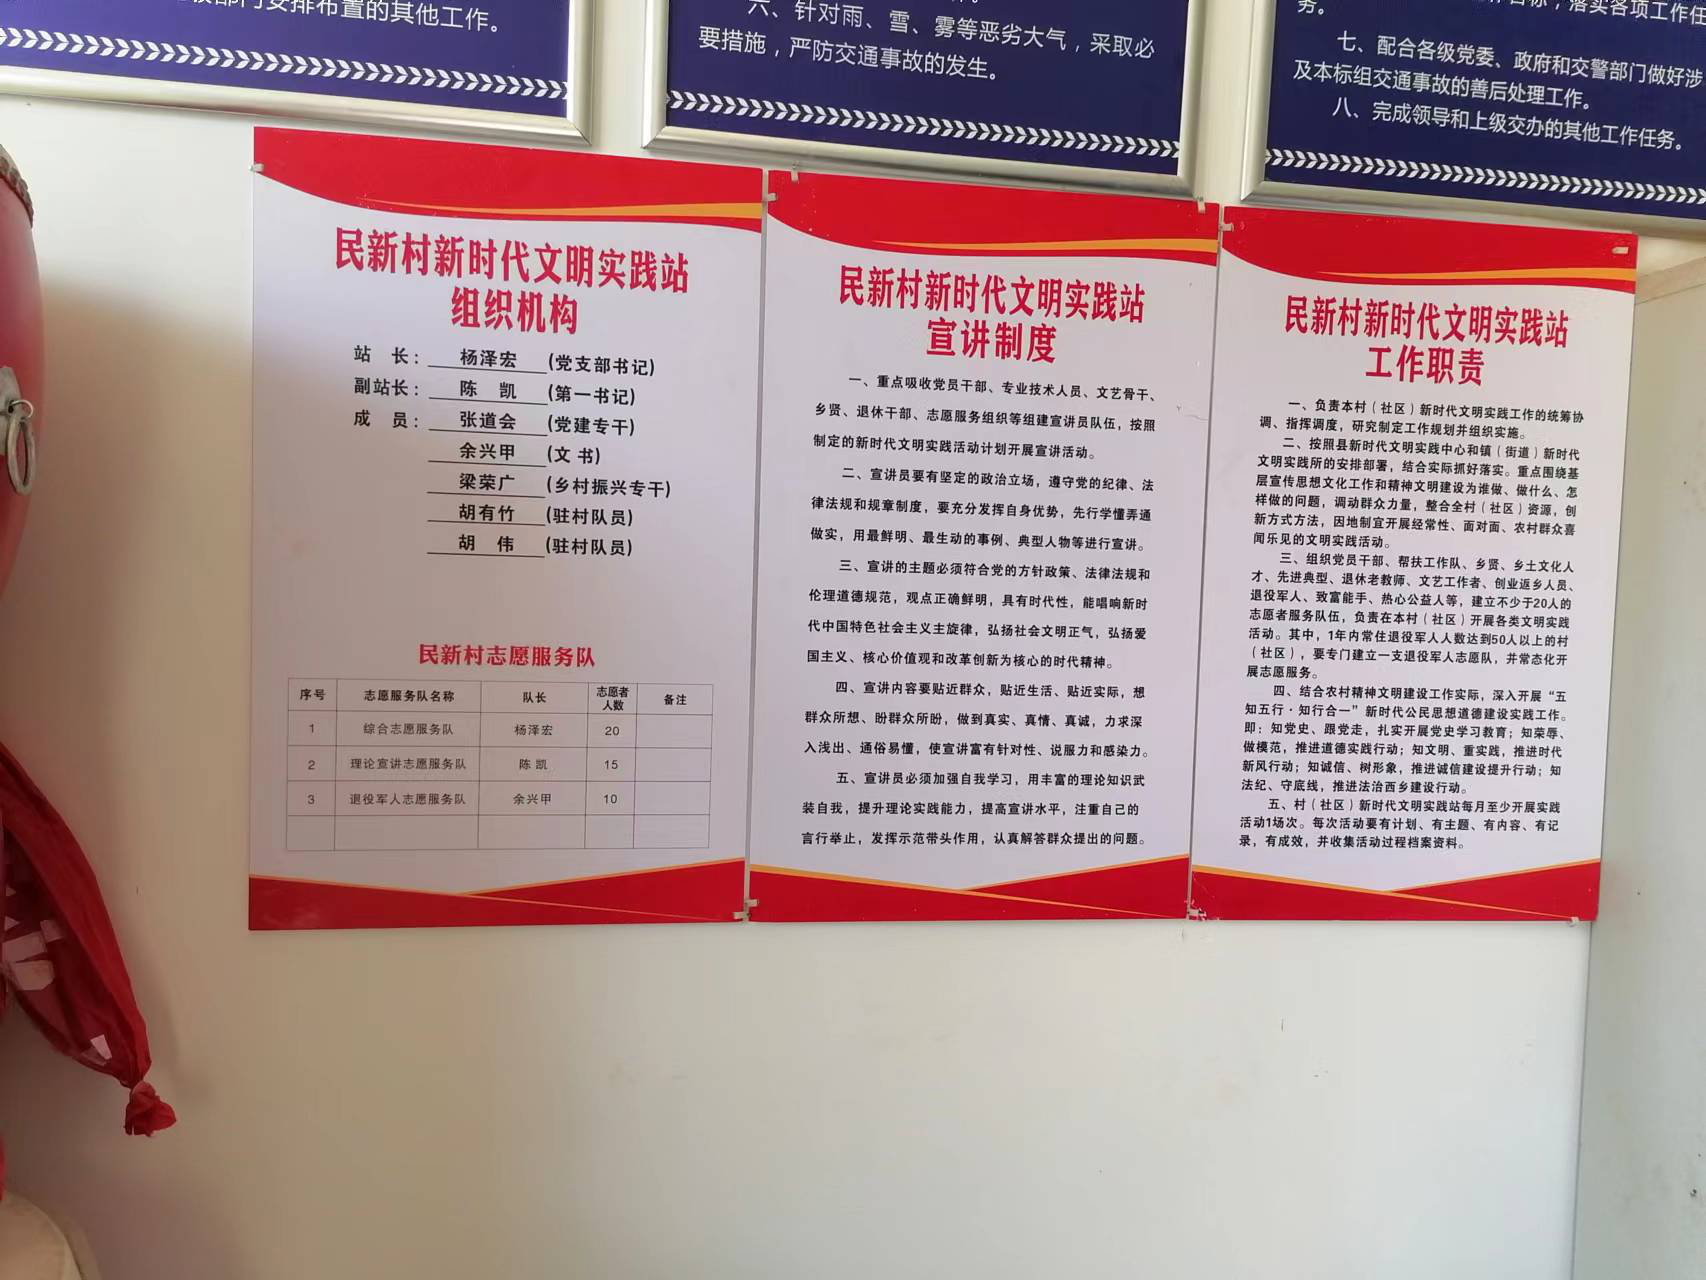 部门安排布置的其他工作。
六、针对雨、雪、雾等恶劣大气，采取必
要措施，严防交通事故的发生。
落实各项工作任
务。
七、配合各级党委、政府和交警部门做好涉
及本标组交通事故的善后处理工作。
八、完成领导和上级交办的其他工作任务。
民新村新时代文明实践站
组织机构
站 长： 杨泽宏 (党支部书记)
副站长： 陈 凯 (第一书记)
成 员： 张道会 (党建专干)
余兴甲 (文 书)
梁荣广 (乡村振兴专干)
胡有竹 (驻村队员)
胡 伟 (驻村队员)
民新村志愿服务队
序号 志愿服务队名称 队长 志愿者人数 备注
1 综合志愿服务队 杨泽宏 20
2 理论宣讲志愿服务队 陈 凯 15
3 退役军人志愿服务队 余兴甲 10
民新村新时代文明实践站
宣讲制度
一、重点吸收党员干部、专业技术人员、文艺骨干、
乡贤、退休干部、志愿服务组织等组建宣讲员队伍，按照
制定的新时代文明实践活动计划开展宣讲活动。
二、宣讲员要有坚定的政治立场，遵守党的纪律、法
律法规和规章制度，要充分发挥自身优势，先行学懂弄通
做实，用最鲜明、最生动的事例、典型人物等进行宣讲。
三、宣讲的主题必须符合党的方针政策、法律法规和
伦理道德规范，观点正确鲜明，具有时代性，能唱响新时
代中国特色社会主义主旋律，弘扬社会文明正气，弘扬爱
国主义、核心价值观和改革创新为核心的时代精神。
四、宣讲内容要贴近群众，贴近生活、贴近实际，想
群众所想、盼群众所盼，做到真实、真情、真诚，力求深
入浅出、通俗易懂，使宣讲富有针对性、说服力和感染力。
五、宣讲员必须加强自我学习，用丰富的理论知识武
装自我，提升理论实践能力，提高宣讲水平，注重自己的
言行举止，发挥示范带头作用，认真解答群众提出的问题。
民新村新时代文明实践站
工作职责
一、负责本村（社区）新时代文明实践工作的统筹协
调、指挥调度，研究制定工作规划并组织实施。
二、按照县新时代文明实践中心和镇（街道）新时代
文明实践所的安排部署，结合实际抓好落实。重点围绕基
层宣传思想文化工作和精神文明建设为谁做、做什么、怎
样做的问题，调动群众力量，整合全村（社区）资源，创
新方式方法，因地制宜开展经常性、面对面、农村群众喜
闻乐见的文明实践活动。
三、组织党员干部、帮扶工作队、乡贤、乡土文化人
才、先进典型、退休老教师、文艺工作者、创业返乡人员、
退役军人、致富能手、热心公益人等，建立不少于20人的
志愿者服务队伍，负责在本村（社区）开展各类文明实践
活动。其中，1年内常住退役军人人数达到50人以上的村
（社区），要专门建立一支退役军人志愿队，并常态化开
展志愿服务。
四、结合农村精神文明建设工作实际，深入开展“五
知五行·知行合一”新时代公民思想道德建设实践工作。
即：知党史、跟党走，扎实开展党史学习教育；知荣辱、
做模范，推进道德实践行动；知文明、重实践，推进时代
新风行动；知诚信、树形象，推进诚信建设提升行动；知
法纪、守底线，推进法治西乡建设行动。
五、村（社区）新时代文明实践站每月至少开展实践
活动1场次。每次活动要有计划、有主题、有内容、有记
录，有成效，并收集活动过程档案资料。